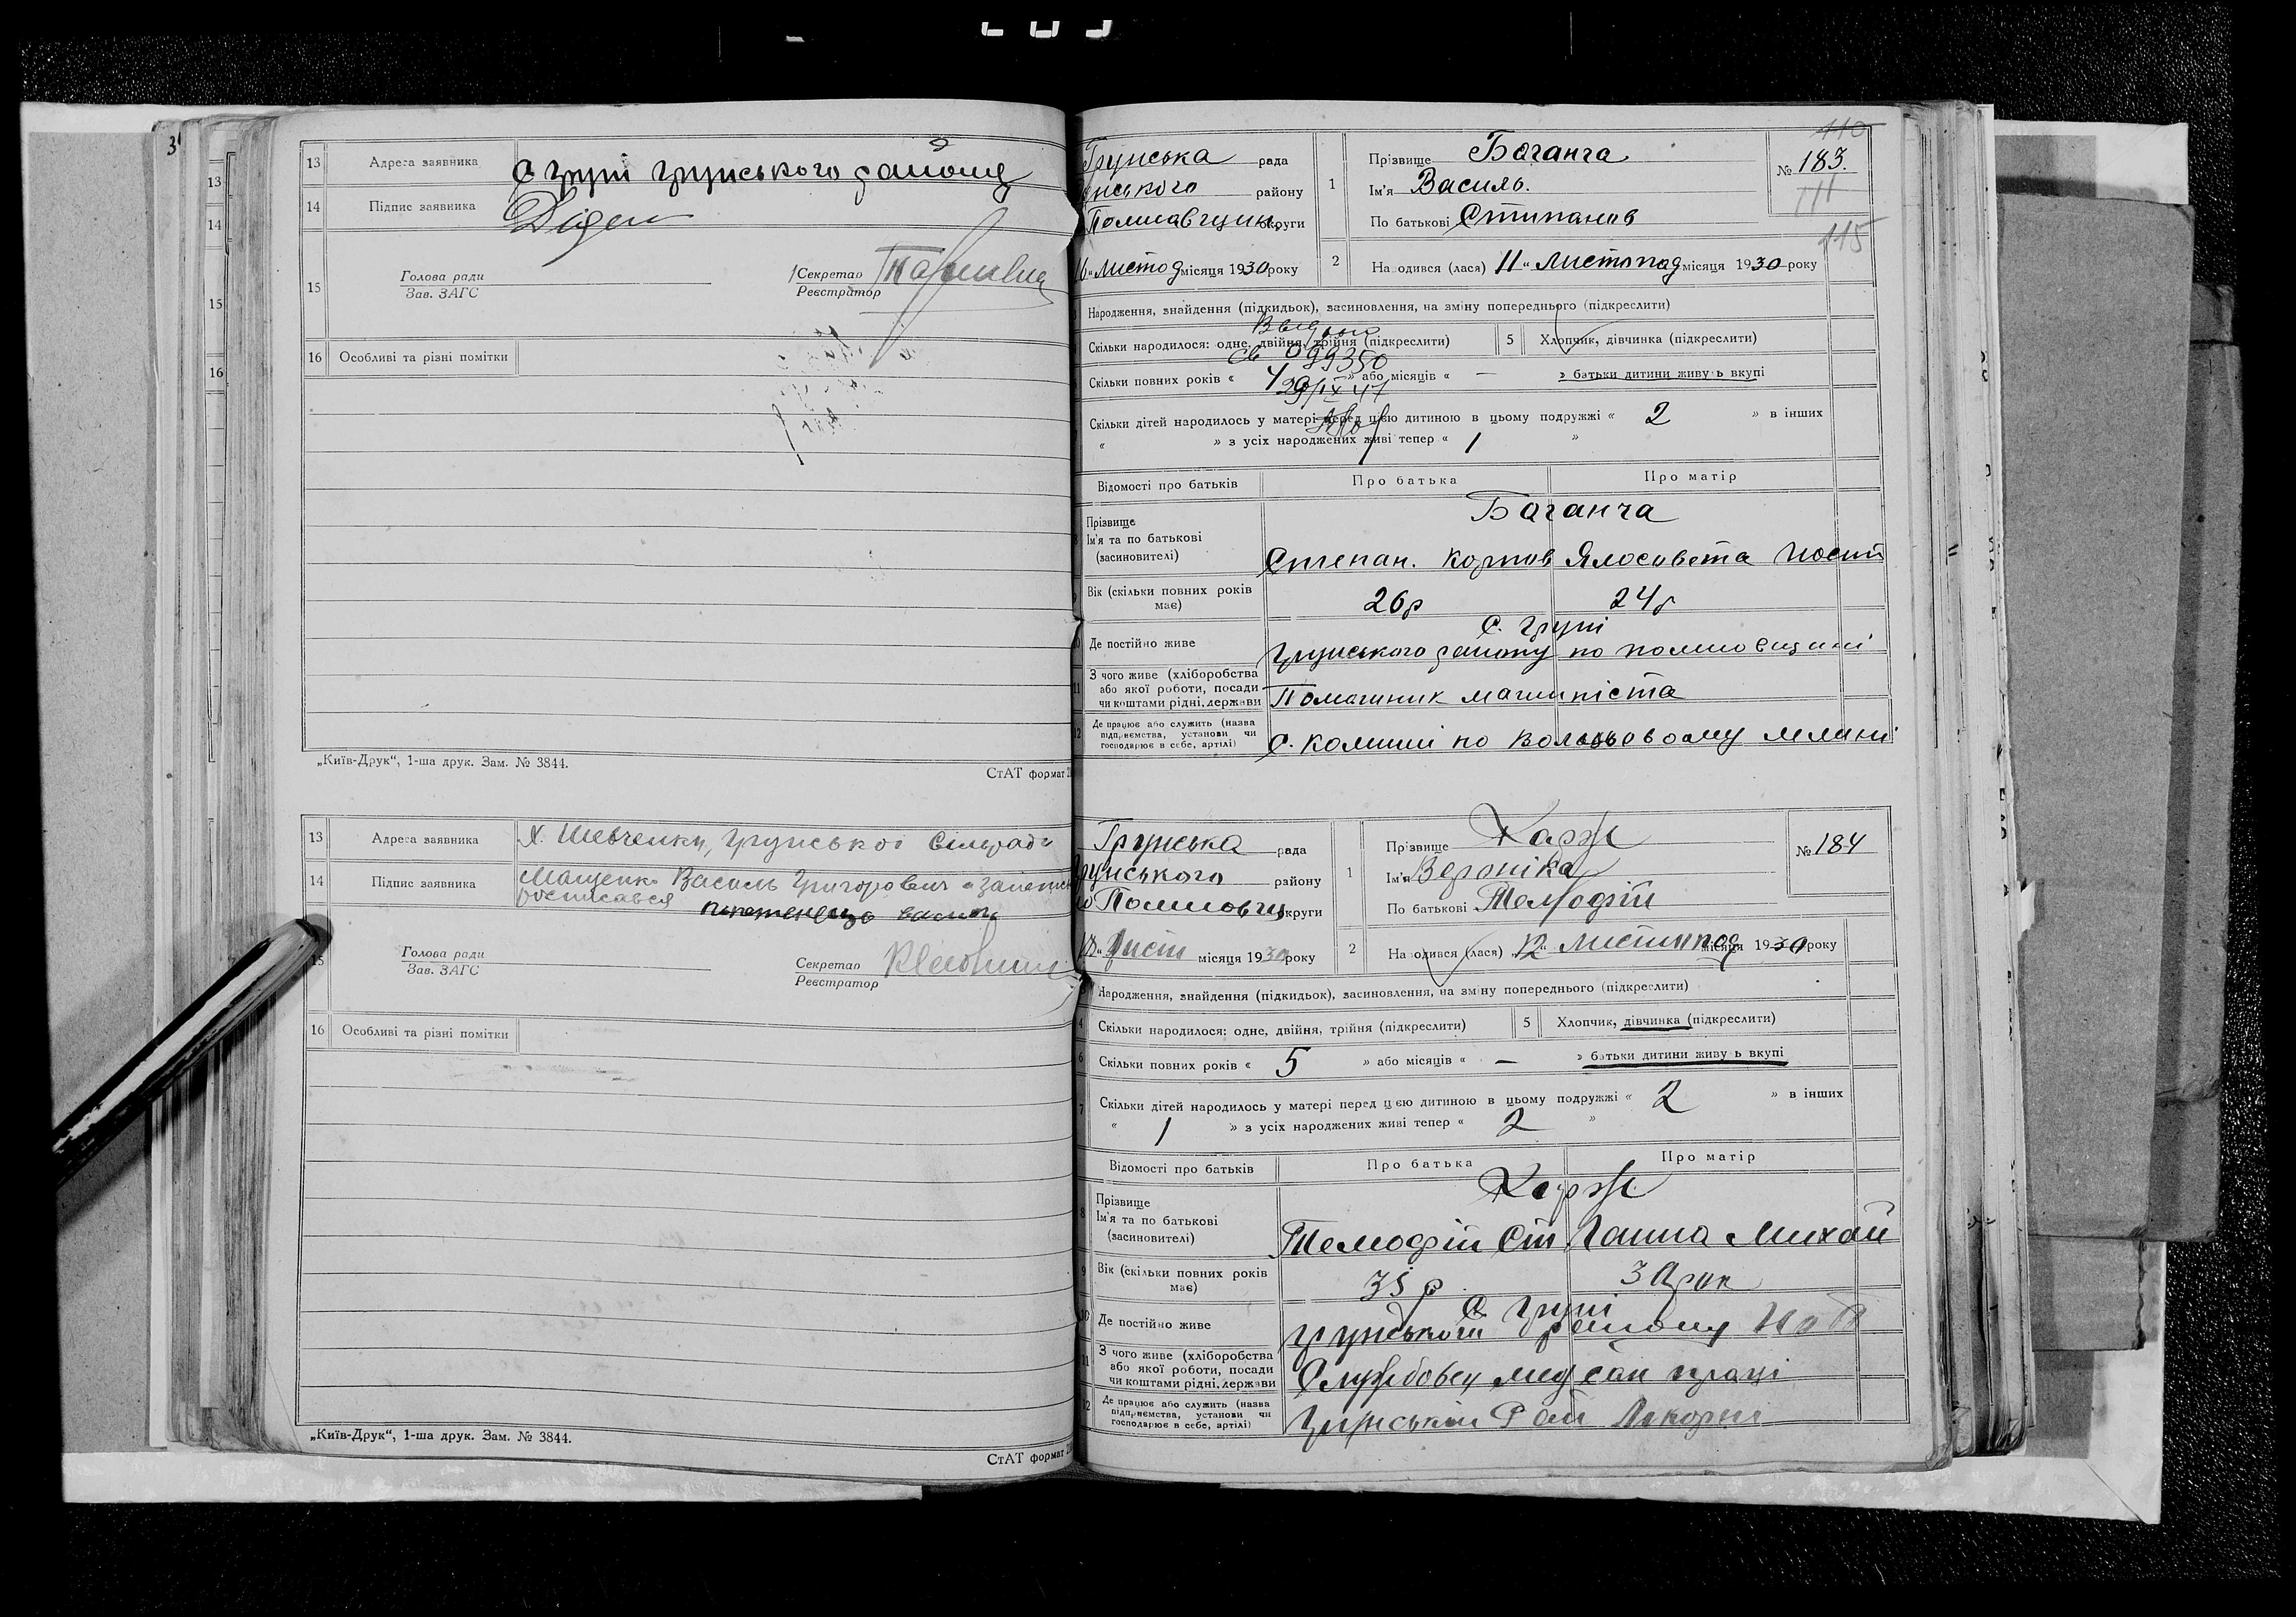 13 Адреса заявника С Груні Грунського району
14 Підпис заявника
15 Голова ради
Зав. ЗАГС
Секретар
Реєстратор
16 Особливі та різні помітки
„Київ-Друк“, 1-ша друк. Зам. № 3844.
СтАТ формат
13 Адреса заявника Х. Шевченки, Грунської Сільради
14 Підпис заявника Мащенко Василь Григорович а за
росписався
15 Голова ради
Зав. ЗАГС
Секретар
Реєстратор
16 Особливі та різні помітки
„Київ-Друк“, 1-ша друк. Зам. № 3844.
СтАТ формат
110
Грунська рада
нського району
Полтавщин округи
16 „Листопад місяця 1930 року
1 Прізвище Баганча
Ім'я Василь.
По батькові Степанов
№ 183.
115
2 Народився (лася) 11 „ Листопад місяця 1930 року
Народження, знайдення (підкидьок), засиновлення, на зміну попереднього (підкреслити)
Скільки народилося: одне, двійня, трійня (підкреслити) 5 Хлопчик, дівчинка (підкреслити)
св 099350
Скільки повних років « 4 » або місяців « — » батьки дитини живуть вкупі
29/IX 41
Скільки дітей народилось у матері перед цією дитиною в цьому подружжі « 2 » в інших
« » з усіх народжених живі тепер « 1 »
Відомості про батьків Про батька Про матір
Баганча
Прізвище
Ім'я та по батькові
(засиновителі)
Степан. Карпов Ялосовета Йосип
Вік (скільки повних років має) 26р 24р
С. Груні
Де постійно живе Грунського району на Полтавщині
З чого живе (хліборобства або якої роботи, посади чи коштами рідні, держави Помашник машиніста
Де працює або служить (назва підприємства, установи чи господарює в себе, артілі) С. Комиші по вольцьовому млині
Грунська рада
Грунського району
Полтавщ округи
18 „ Лист місяця 1930 року
1 Прізвище Харж
Ім'я Вероніка
По батькові Темофій
№ 184
2 Народився (лася) 12 „ Листопад місяця 1930 року
Народження, знайдення (підкидьок), засиновлення, на зміну попереднього (підкреслити)
4 Скільки народилося: одне, двійня, трійня (підкреслити) 5 Хлопчик, дівчинка (підкреслити)
6 Скільки повних років « 5 » або місяців « — » батьки дитини живуть вкупі
7 Скільки дітей народилось у матері перед цією дитиною в цьому подружжі « 2 » в інших
« 1 » з усіх народжених живі тепер « 2 »
Відомості про батьків Про батька Про матір
Харж
8 Прізвище
Ім'я та по батькові
(засиновителі)
Темофій Ст Ганна Михай
9 Вік (скільки повних років має) 35 р
С. Груні
10 Де постійно живе Грунського району на П
11 З чого живе (хліборобства або якої роботи, посади чи коштами рідні, держави Службовец мед сан праці
12 Де працює або служить (назва підприємства, установи чи господарює в себе, артілі) Грунській Рай Лікарні